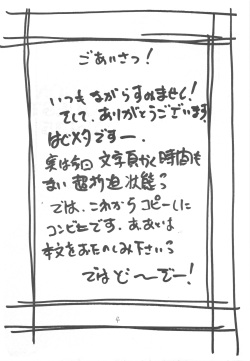 ごあいさつ！
いつもながらすみません！
そして、ありがとうございます
はじメタですー。
実は今回 文字書く時間も
ない 超切迫状態っ
では、これからコピーしに
コンビニです、ああとは
本文をおたのしみ下さいっ
ではど〜ぞー！
4